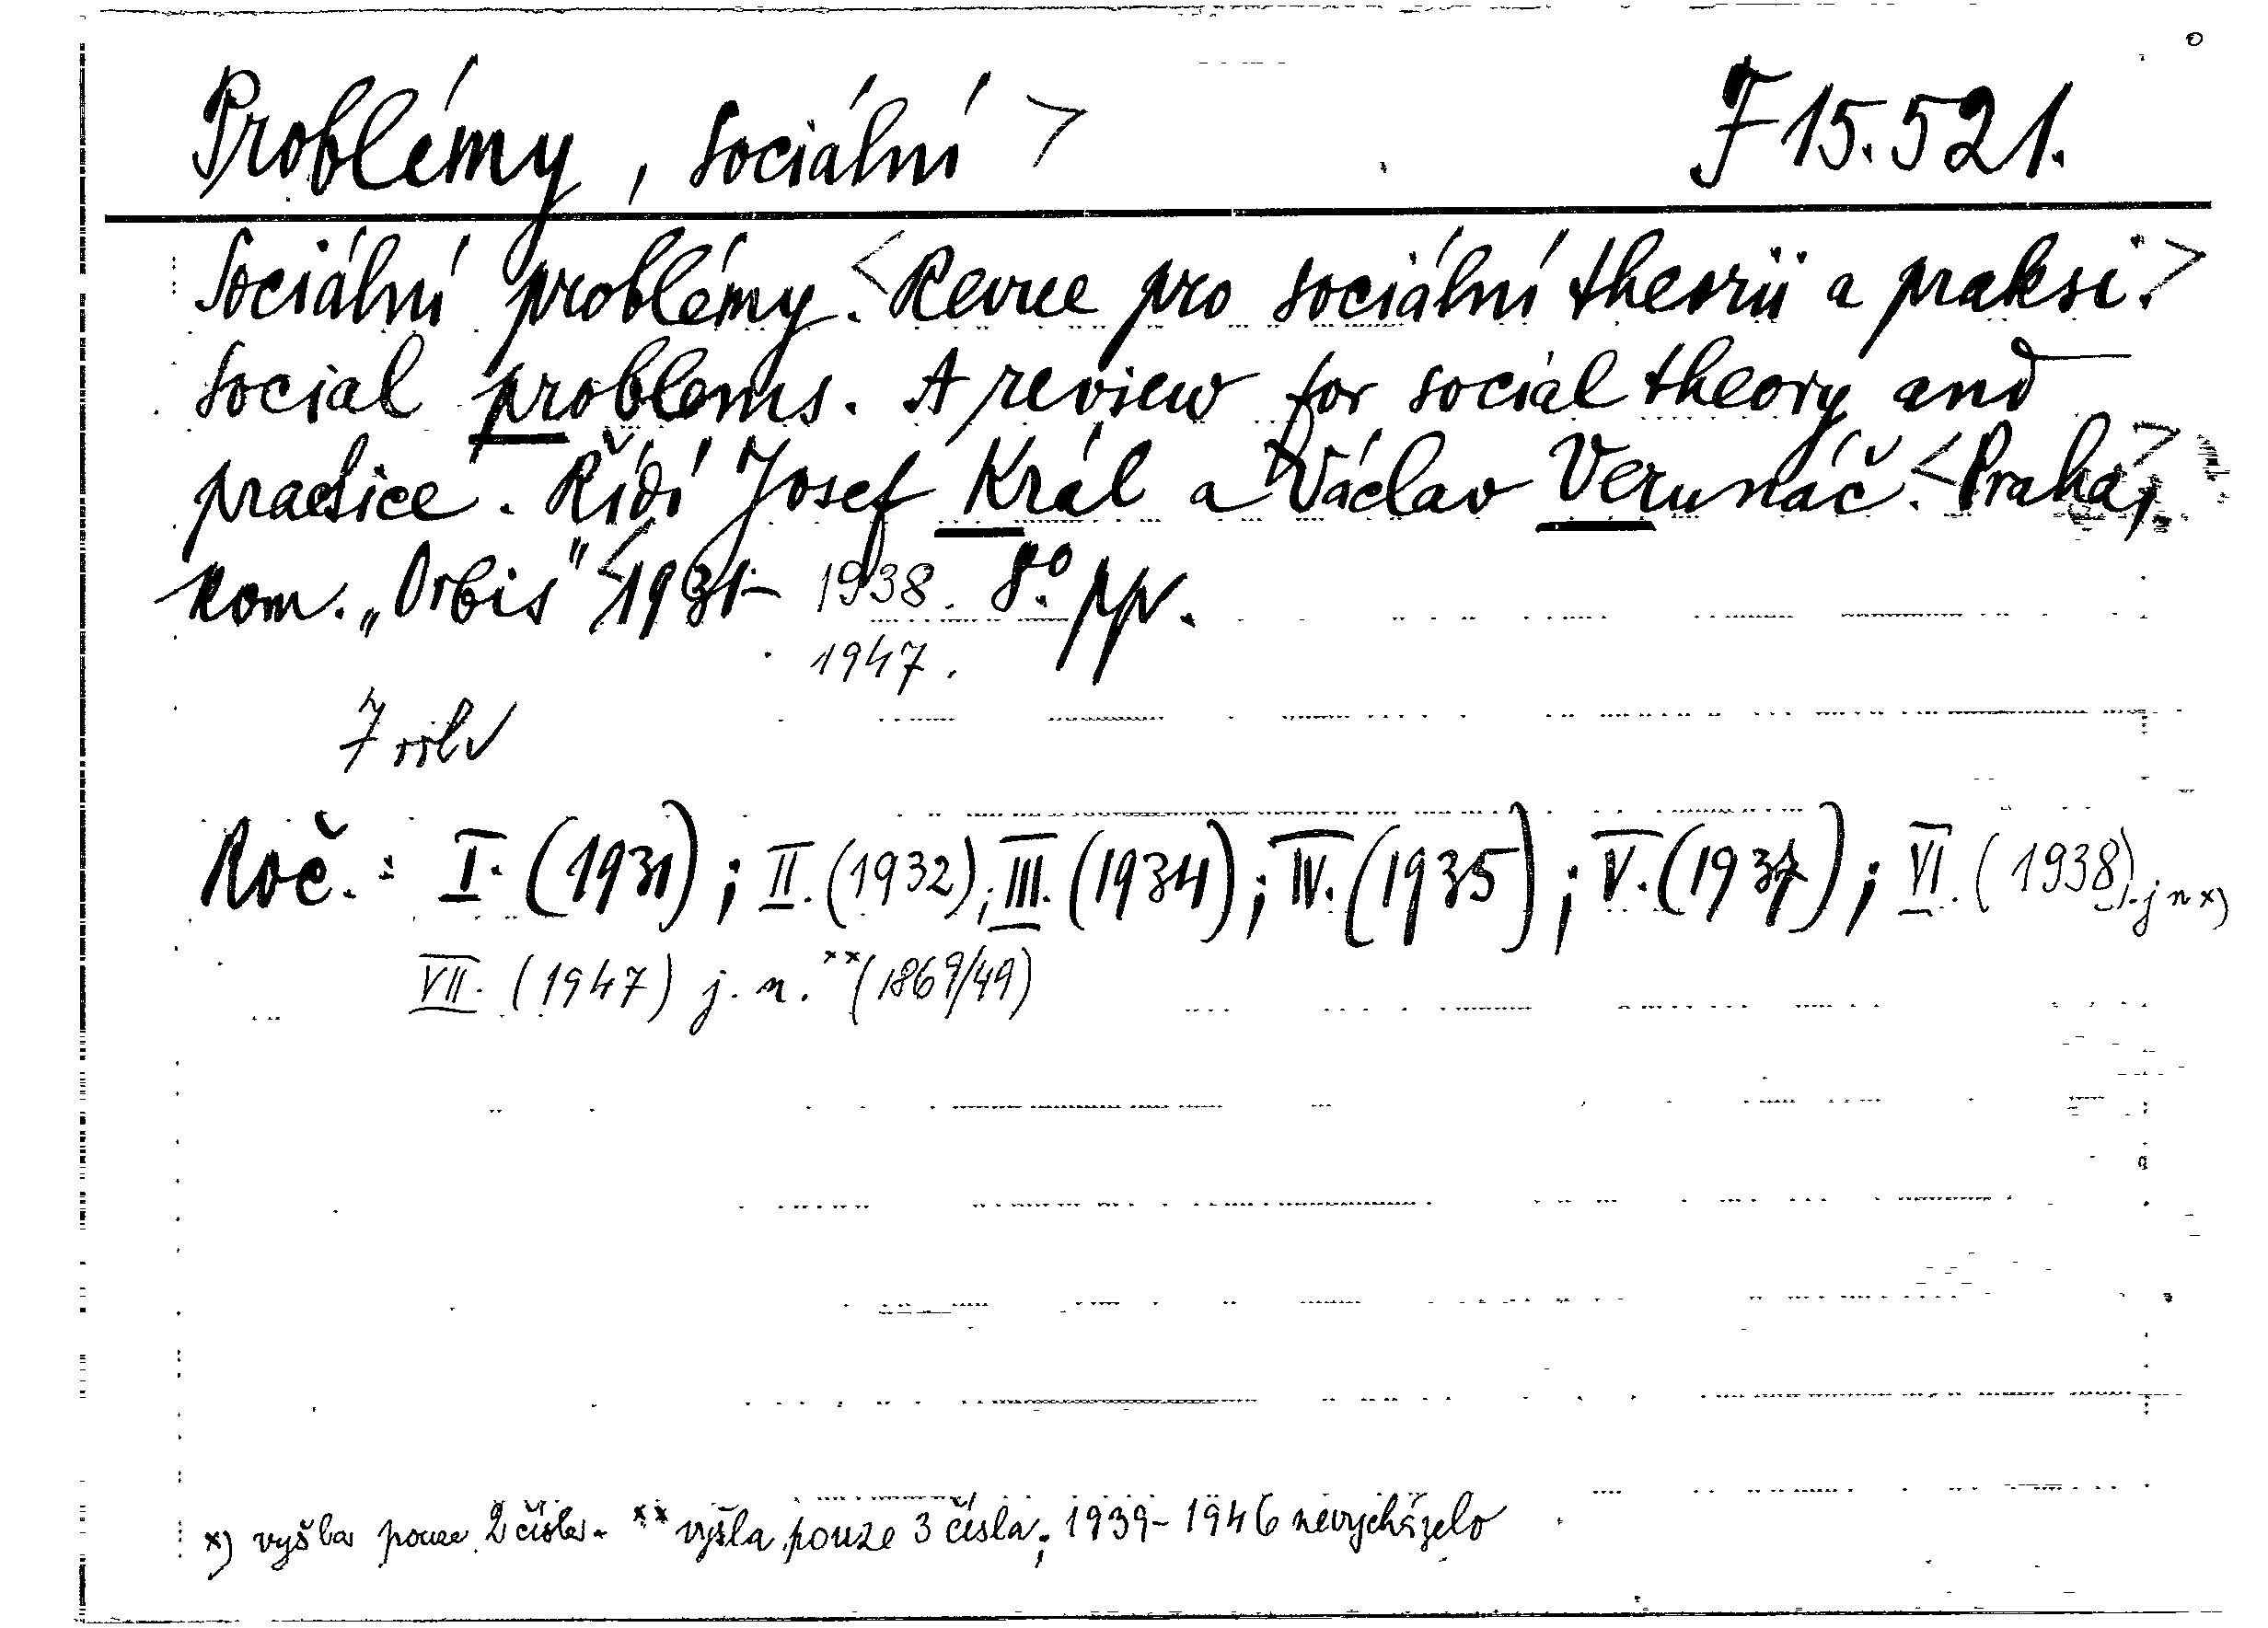 Problémy, sociální > F 15.521.
Sociální problémy. <Revue pro sociální theorii a praksi.>
Social problems. A review for social theory and
practice. Řídí Josef Král a Václav Verunáč. <Praha,>
kom. „Orbis" <1931- 1938. 8º. pp.
1947.
7
Roč.: I. (1931); II. (1932); III. (1934); IV. (1935); V. (1937); VI. (1938). j n x)
VII. (1947) j. n. xx (1869/49)
x) vyšla pouze 2 čísla. xx vyšla pouze 3 čísla; 1939-1946 nevycházelo